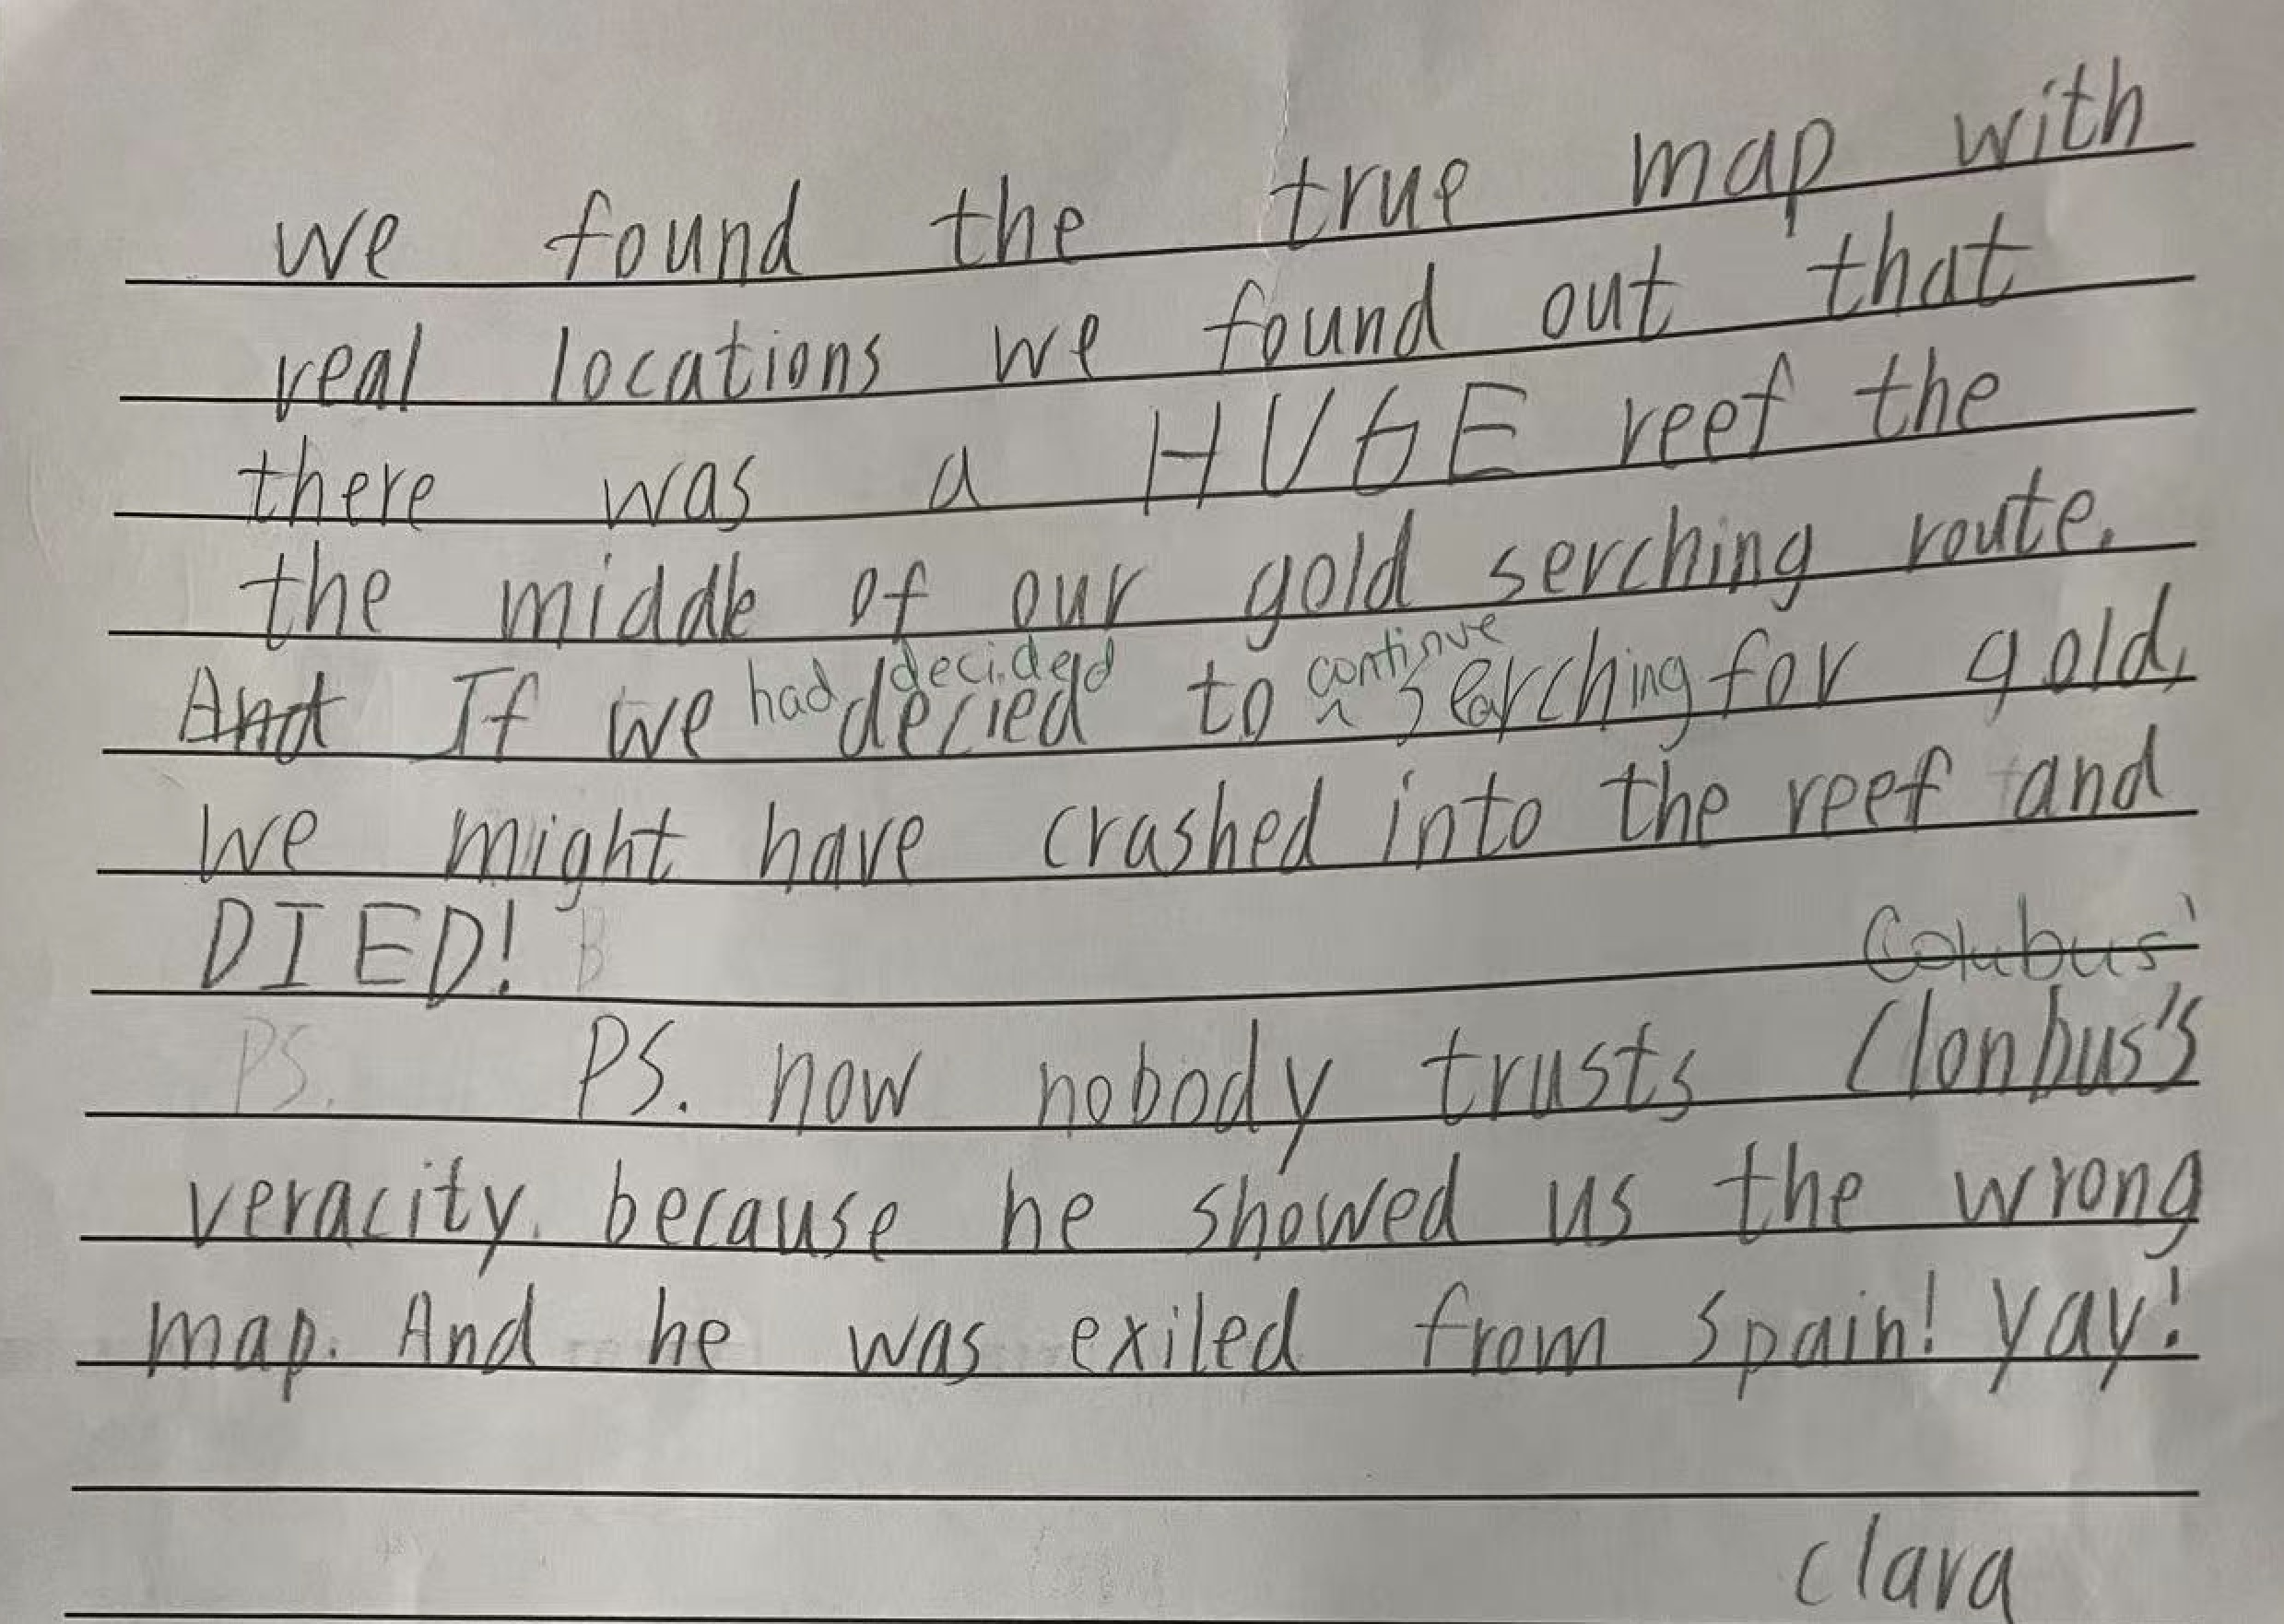 we found the true map with
real locations we found out that
there was a HUGE reef the
the middle of our gold serching route.
And If we had decied decided to continue searching for gold,
we might have crashed into the reef and
DIED! B
Colubus'
PS. PS. now nobody trusts Clonbus's
veracity. because he showed us the wrong
map. And he was exiled from spain! yay!
clara